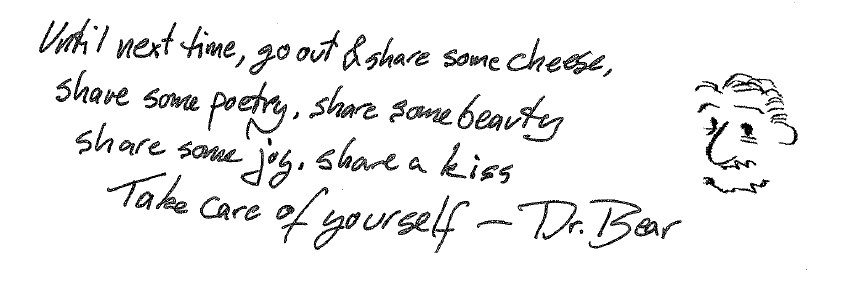 Until next time, go out & share some cheese,
share some poetry, share some beauty
share some joy, share a kiss
Take care of yourself — Dr. Bear